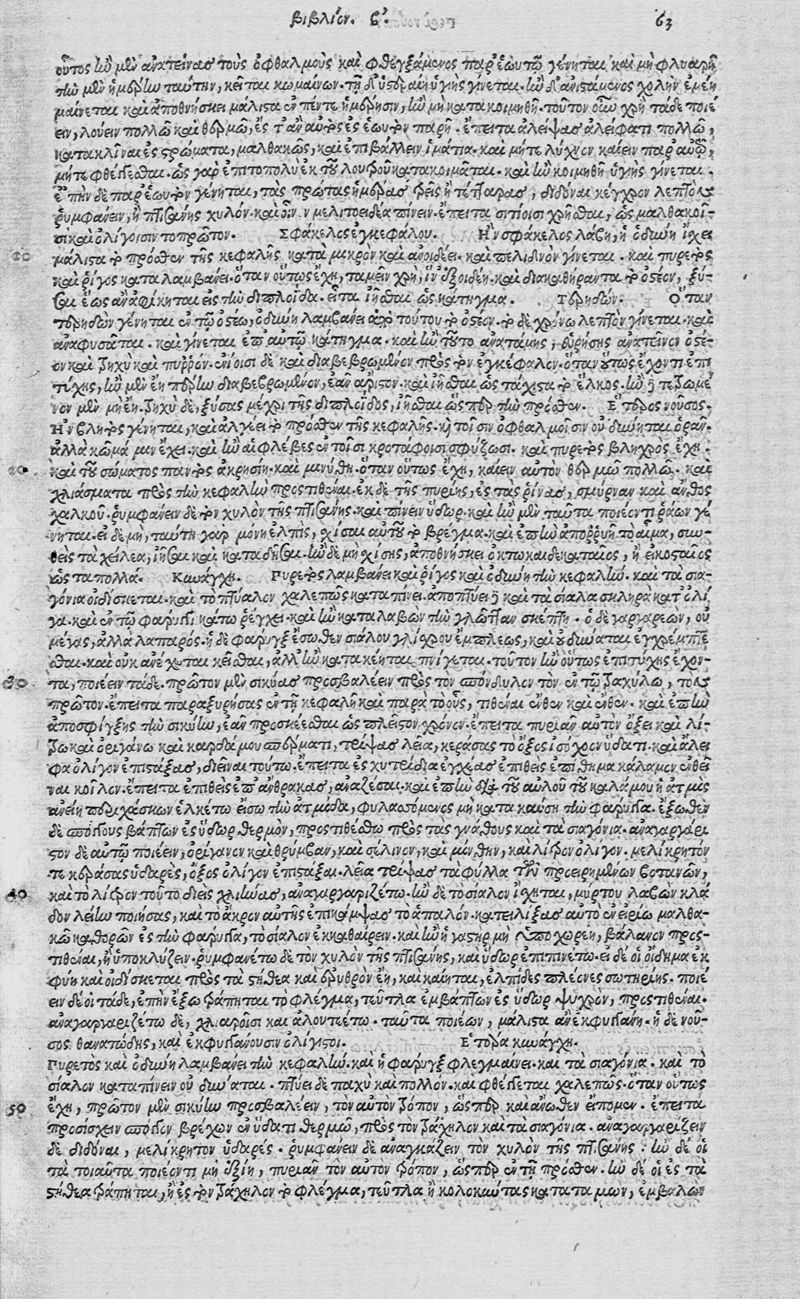 βιβλίον. ϛ'. 63
οὗτος ἢν μὲν ἀνατείνας τοὺς ὀφθαλμοὺς καὶ φθεγξάμενος παρ' ἑωυτῷ γένηται καὶ μὴ φλυαρῇ
τὴν μὲν ἡμέρην ταύτην, κεῖται κωμαίνων. τῇ δ' ὑστεραίῃ ὑγιὴς γίνεται. ἢν δ' ἀνιστάμενος χολὴν ἐμέῃ
μαίνεται καὶ ἀποθνήσκει μάλιστα ἐν πέντε ἡμέρῃσιν, ἢν μὴ κατακοιμηθῇ. τοῦτον ὅταν χρὴ τάδε ποιέ
ειν, λούειν πολλῷ καὶ θερμῷ, ἔς τ' ἂν αὐτὸς ἐς ἑωυτὸν παρῇ. ἔπειτα ἀλείψας ἀλείφατι πολλῷ,
κατακλῖναι ἐς στρώματα, μαλθακῶς, καὶ ἐπιβάλλειν ἱμάτια. καὶ μήτε λύχνον καίειν παρ' αὐτῷ,
μήτε φθέγγεσθαι. ὡς γὰρ ἐπιτοπολὺ ἐκ τοῦ λουτροῦ κατακοιμᾶται. καὶ ἢν κοιμηθῇ ὑγιὴς γίνεται.
ἐπὴν δὲ παρ' ἑωυτὸν γένηται, τὰς πρώτας ἡμέρας τρεῖς ἢ τέτταρας, διδόναι κέγχρον λεπτὸν
ῥυμφάνειν, ἢ πτισάνης χυλόν. καὶ οἶνον μελιτοειδέα πίνειν. ἔπειτα σιτίοισι χρῆσθαι, ὡς μαλθακοῖ-
σι καὶ ὀλίγοισιν τοπρῶτον. Σφάκελος ἐγκεφάλου. Ἢν σφάκελος λάβῃ, ἡ ὀδύνη ἴσχει
10 μάλιστα τὸ πρόσθεν τῆς κεφαλῆς κατὰ μικρὸν καὶ ἀνοιδέει. καὶ πελιδνὸν γίνεται. καὶ πυρετὸς
καὶ ῥῖγος καταλαμβάνει. ὅταν οὕτως ἔχῃ, ταμεῖν χρὴ, ἵν' ἐξοιδέῃ. καὶ διακαθήραντα τὸ ὀστέον, ξύ-
σαι ἕως ἂν ἀφίκηται εἰς τὴν διπλοΐδα. εἶτα ἰῆσθαι ὡς κάτηγμα. Τερηδών. Ὅταν
τερηδὼν γένηται ἐν τῷ ὀστέῳ, ὀδύνη λαμβάνει ἀπὸ τούτου τὸ ὀστέον. τῷ δὲ χρόνῳ λεπτὸν γίνεται. καὶ
ἀναφυσᾶται. καὶ γίνεται ἐπ' αὐτῷ κάτηγμα. καὶ ἢν τοῦτο ἀνατάμῃς, εὑρήσεις ἀνατεῖνον ὀστέ-
ον καὶ τρηχὺ καὶ πυῤῥόν. ἐνίοισι δὲ καὶ διαβεβρωμένον πρὸς τὸν ἐγκέφαλον. ὅταν οὕτως ἔχοντι ἐπι
τύχῃς, ἢν μὲν ἔῃ πέρην διαβεβρωμένον, ἐᾶν ἄριστον. καὶ ἰῆσθαι ὡς τάχιστα τὸ ἕλκος. ἢν δὲ τετρωμέ
νον μὲν μὴ ἔῃ. τρηχὺ δὲ, ξύσας μέχρι τῆς διπλοΐδος, ἰῆσθαι ὥσπερ τὴν πρόσθεν. Ἕτερος νοῦσος.
Ἢν βλητὸς γένηται, καὶ ἀλγέει τὸ πρόσθεν τῆς κεφαλῆς. καὶ τοῖσιν ὀφθαλμοῖσιν οὐ δύνηται ὁρᾶν.
ἀλλὰ κῶμά μιν ἔχει. καὶ ἢν αἱ φλέβες ἐν τοῖσι κροτάφοισι σφύζωσι. καὶ πυρετὸς βληχρὸς ἔχῃ.
20 καὶ τοῦ σώματος παντὸς ἀκρησίη. καὶ μινύθῃ. ὅταν οὕτως ἔχῃ, καίειν αὐτὸν θερμῷ πολλῷ. καὶ
χλιάσματα πρὸς τὴν κεφαλὴν προστιθέναι. ἐκ δὲ τῆς πυρίης, ἐς τὰς ῥῖνας, σμύρναν καὶ ἄνθος
χαλκοῦ. ῥυμφάνειν δὲ τὸν χυλὸν τῆς πτισάνης. καὶ πίνειν ὕδωρ. καὶ ἢν μὲν ταῦτα ποιέοντι ῥᾴων γέ
νηται. εἰ δὲ μὴ, ταύτῃ γὰρ μόνῃ ἐλπὶς, σχίσαι αὐτοῦ τὸ βρέγμα. καὶ ἐπὴν ἀποῤῥυῇ τὸ αἷμα, συν-
θεὶς τὰ χείλεα, ἰῆσαι καὶ καταδῆσαι. ἢν δὲ μὴ σχίσῃς, ἀποθνήσκει ὀκτωκαιδεκαταῖος, ἢ εἰκοσταῖος
ὡς τὰ πολλά. Κυνάγχη. Πυρετὸς λαμβάνει καὶ ῥῖγος καὶ ὀδύνη τὴν κεφαλήν. καὶ τὰ σια-
γόνια οἰδίσκεται. καὶ τὸ πτύαλον χαλεπῶς καταπίνει. ἀποπτύει δὲ καὶ τὰ σίαλα σκληρὰ κατ' ὀλί
γα. καὶ ἐν τῷ φάρυγγι κάτω ῥέγχει. καὶ ἢν καταλαβὼν τὴν γλῶτταν σκέπτῃ. ὁ δὲ γαργαρεὼν, οὐ
μέγας, ἀλλὰ λαπαρός. ἡ δὲ φάρυγξ ἔσωθεν σιάλου γλίσχρου ἔμπλεως, καὶ οὐ δύναται ἐγχρέμπτε
σθαι. καὶ οὐκ ἀνέχεται κεῖσθαι, ἀλλ' ἢν κατακέηται πνίγεται. τοῦτον ἢν οὕτως ἐπιτύχῃς ἔχον-
30 τα, ποιέειν τάδε. πρῶτον μὲν σικύας προσβαλέειν πρὸς τὸν σπόνδυλον τὸν ἐν τῷ τραχήλῳ, τὸν
πρῶτον. ἔπειτα παραξυρήσας ἐν τῇ κεφαλῇ καὶ παρὰ τὸ οὖς, τιθέναι ἔνθεν καὶ ἔνθεν. καὶ ἐπὴν
ἀποσφίγξῃς τὴν σικύην, ἐᾶν προσκέεσθαι ὡς πλεῖστον χρόνον. ἔπειτα πυριᾶν αὐτὸν ὄξει καὶ λί-
τρῳ καὶ ὀριγάνῳ καὶ καρδάμου σπέρματι, τρίψας λεῖα, κεράσας τὸ ὄξος ἰσόχοον ὕδατι. καὶ ἄλει
φα ὀλίγον ἐπιστάξας, διεῖναι τούτῳ. ἔπειτα ἐς χυτρίδια ἐγχέας ἐπιθεὶς ἐπίθημα κάλαμον ἐνθεῖ
ναι κοῖλον. ἔπειτα ἐπιθεὶς ἐπ' ἄνθρακας, ἀναζέσαι. καὶ ἐπὴν διὰ τοῦ αὐλοῦ τοῦ καλάμου ἡ ἀτμὶς
ἀνείῃ περιχάσκων ἑλκέτω εἴσω τὴν ἀτμίδα, φυλασσόμενος μὴ κατακαύσῃ τὴν φάρυγγα. ἔξωθεν
δὲ σπόγγους βάπτων ἐς ὕδωρ θερμὸν, προστιθέσθω πρὸς τὰς γνάθους καὶ τὰ σιαγόνια. ἀναγαργάρι
στον δὲ αὐτῷ ποιέειν, ὀρίγανον καὶ θρύμβαν, καὶ σέλινον, καὶ μίνθην, καὶ λίτρον ὀλίγον. μελίκρητόν
τε κεράσας ὑδαρὲς, ὄξος ὀλίγον ἐπιστάξαι. λεῖα τρίψας τὰ φύλλα τῶν προειρημένων βοτανῶν,
40 καὶ τὸ λίτρον τοῦτο διεὶς χλιήνας, ἀναγαργαριζέτω. ἢν δὲ τὸ σίαλον ἴσχηται, μύρτου λαβὼν κλά
δον λεῖον ποιήσας, καὶ τὸ ἄκρον αὐτῆς ἐπικάμψας τὸ ἁπαλόν. κατειλίξας αὐτὸ ἐν εἰρίῳ μαλθα-
κῷ καθορῶν ἐς τὴν φάρυγγα, τὸ σίαλον ἐκκαθαίρειν. καὶ ἢν ἡ γαστὴρ μὴ ὑποχωρέῃ, βάλανον προς-
τιθέναι, ἢ ὑποκλύζειν. ῥυμφανέτω δὲ τὸν χυλὸν τῆς πτισάνης, καὶ ὕδωρ ἐπιπινέτω. εἰ δέ οἱ οἴδημα ἐκ
φύῃ καὶ οἰδίσκεται πρὸς τὰ στήθεα καὶ ἐρυθρὸν ἔῃ, καὶ καίηται, ἐλπίδες πλέονες σωτηρίης. ποιέ
ειν δέ οἱ τάδε, ἐπὴν ἔξω τράπηται τὸ φλέγμα, τεῦτλα ἐμβάπτων ἐς ὕδωρ ψυχρὸν, προστιθέναι.
ἀναγαργαριζέτω δὲ, χλιαροῖσι καὶ ἀλουτείτω. ταῦτα ποιέων, μάλιστα ἂν ἐκφυγγάνῃ. ἡ δὲ νοῦ-
σος θανατώδης, καὶ ἐκφυγγάνουσιν ὀλίγιστοι. Ἑτέρα κυνάγχη.
Πυρετὸς καὶ ὀδύνη λαμβάνει τὴν κεφαλήν. καὶ ἡ φάρυγξ φλεγμαίνει. καὶ τὰ σιαγόνια. καὶ τὸ
σίαλον καταπίνειν οὐ δύναται. πτύει δὲ παχὺ καὶ πολλόν. καὶ φθέγγεται χαλεπῶς. ὅταν οὕτως
50 ἔχῃ, πρῶτον μὲν σικύην προσβαλέειν, τὸν αὐτὸν τρόπον, ὥσπερ καὶ ἄνωθεν εἴπομεν. ἔπειτα
προσίσχειν σπόγγον βρέχων ἐν ὕδατι θερμῷ, πρὸς τὸν τράχηλον καὶ τὰ σιαγόνια. ἀναγαργαρίζειν
δὲ διδόναι, μελίκρητον ὑδαρές. ῥυμφάνειν δὲ ἀναγκάζειν τὸν χυλὸν τῆς πτισάνης. ἢν δέ οἱ
τὰ τοιαῦτα ποιέοντι μὴ ἐξίῃ, πυριᾶν τὸν αὐτὸν τρόπον, ὥσπερ ἐν τῇ πρόσθεν. ἢν δέ οἱ ἐς τὰ
στήθεα τράπηται, ἢ ἐς τὸν τράχηλον τὸ φλέγμα, τεῦτλα ἢ κολοκύντας καταταμὼν, ἐμβαλὼν